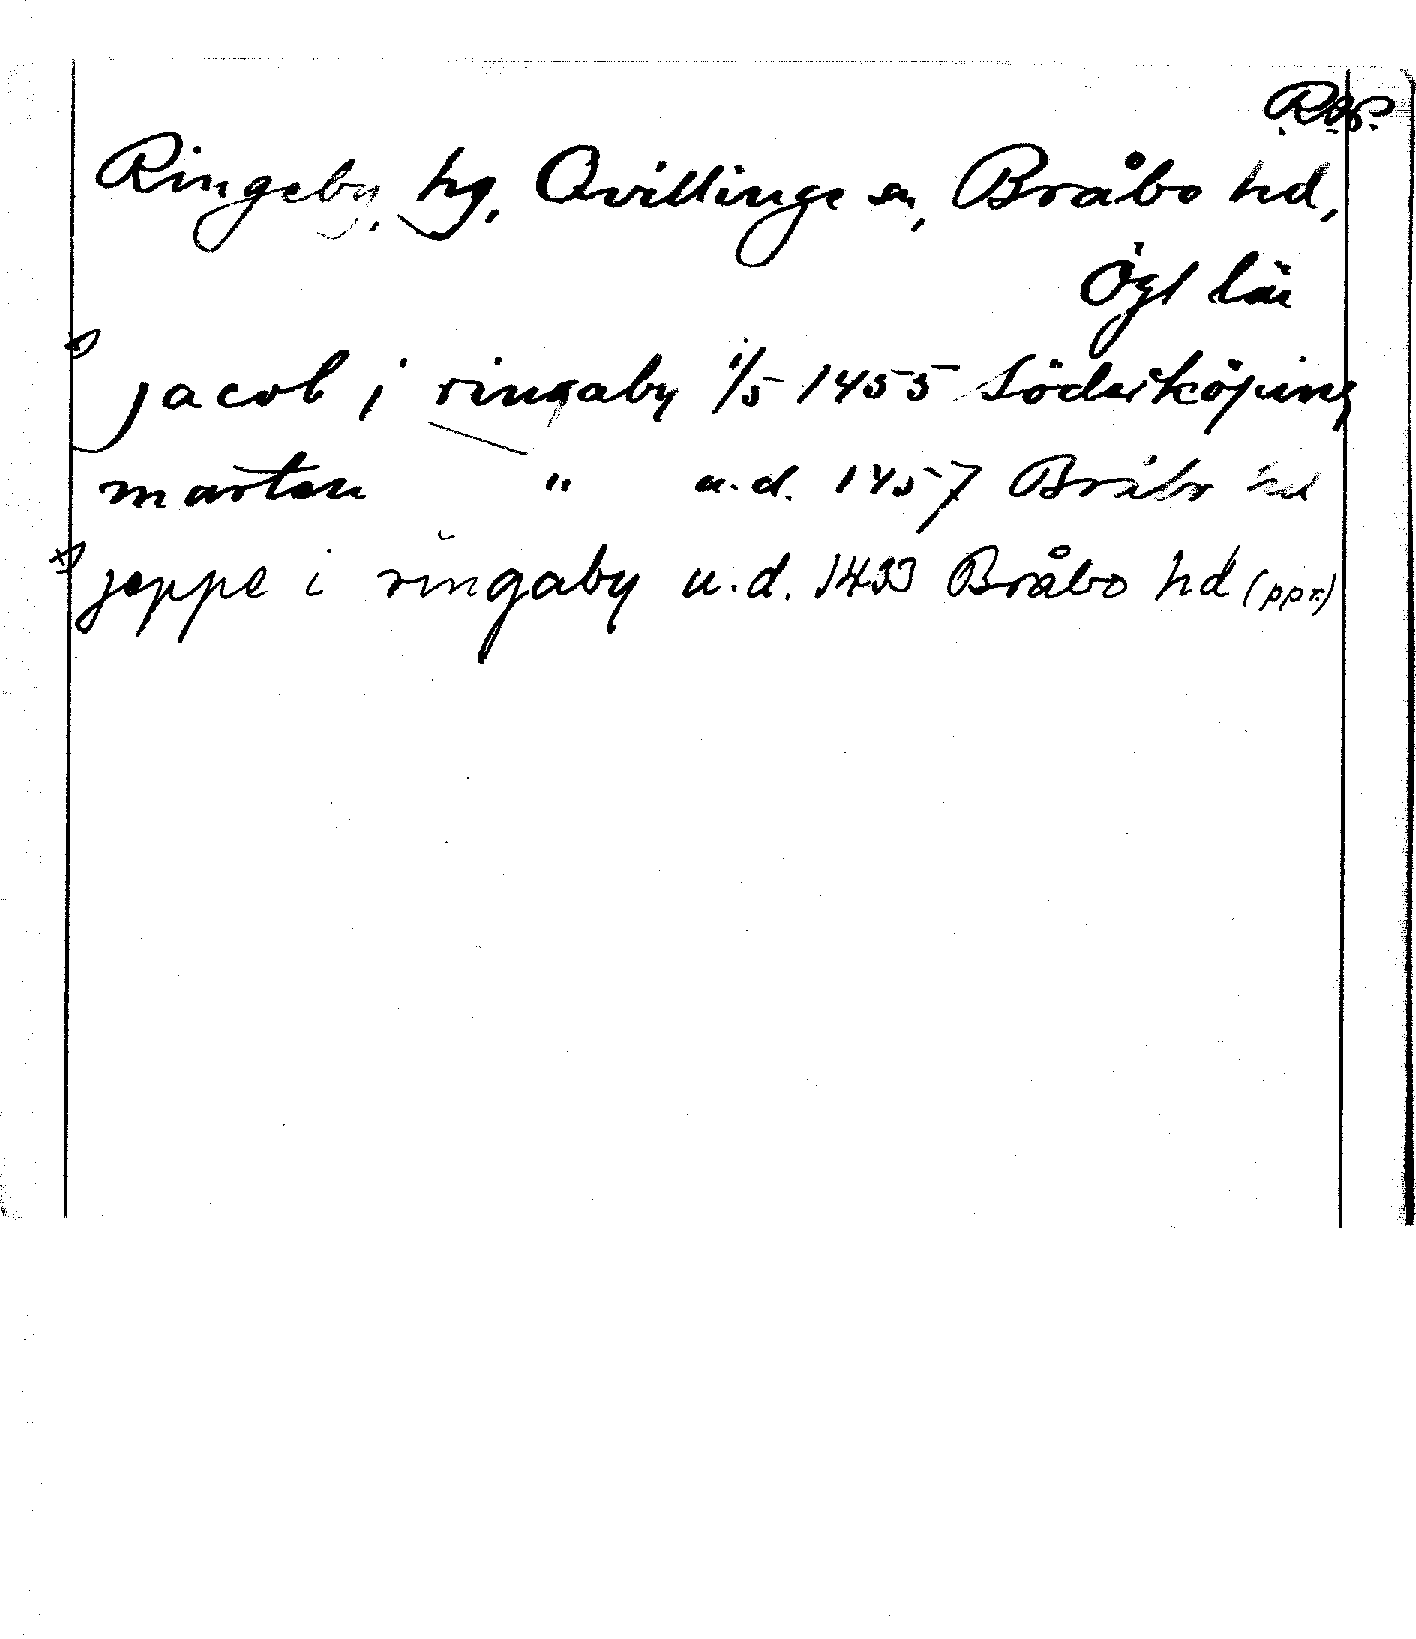 Ringeby, hg, Qvillinge sn, Bråbo hd,
Ögl län
jacob i ringaby 1/5 1455 Söderköping
marten " u.d. 1457 Bråbo hd
jeppe i ringaby u.d. 1433 Bråbo hd (ppr.)